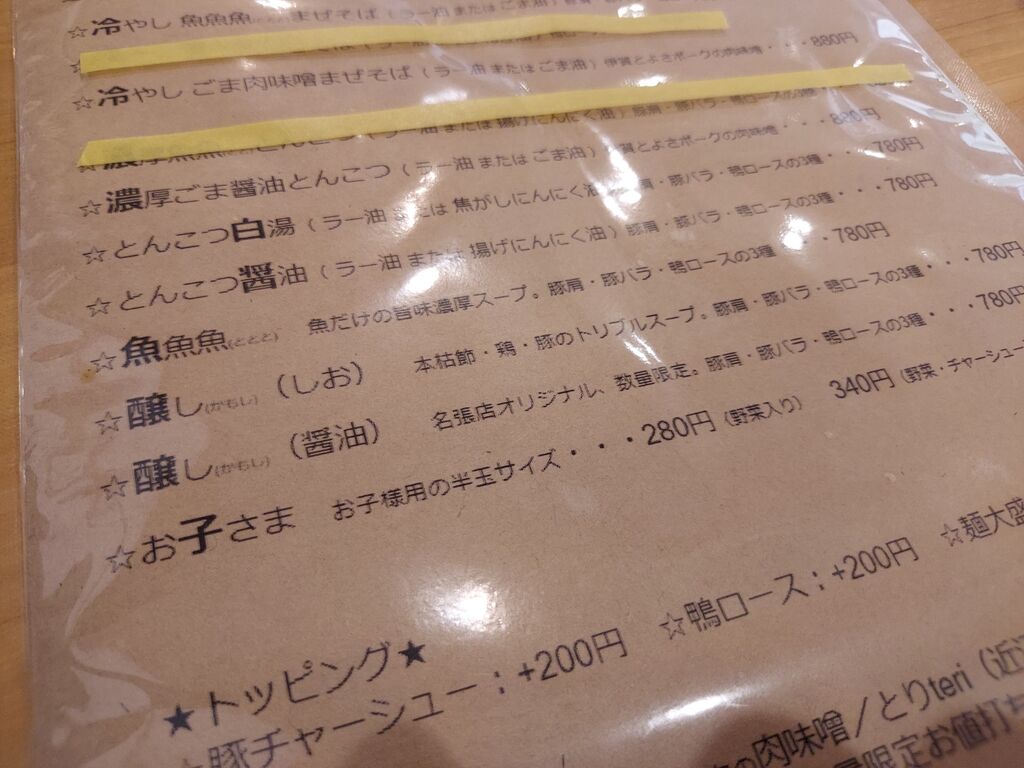 ☆冷やし 魚魚魚 まぜそば (ラー油 または ごま油)
☆冷やし ごま肉味噌まぜそば (ラー油 または ごま油) 伊賀とよさポークの肉味噌・・・880円
(ラー油 または 揚げにんにく油) 豚肩・豚バラ・鴨ロースの3種・・・880円
☆濃厚ごま醤油とんこつ (ラー油 または ごま油) とよさポークの肉味噌・・・880円
☆とんこつ白湯 (ラー油 または 焦がしにんにく油) ・豚バラ・鴨ロースの3種・・・780円
☆とんこつ醤油 (ラー油 または 揚げにんにく油) 豚肩・豚バラ・鴨ロースの3種・・・780円
☆魚魚魚(ととと) 魚だけの旨味濃厚スープ。豚肩・豚バラ・鴨ロースの3種・・・780円
☆醸し(かもし) (しお) 本枯節・鶏・豚のトリプルスープ。豚肩・豚バラ・鴨ロースの3種・・・780円
☆醸し(かもし) (醤油) 名張店オリジナル、数量限定。豚肩・豚バラ・鴨ロースの3種・・・780円
☆お子さま お子様用の半玉サイズ・・・280円 (野菜入り) 340円 (野菜・チャーシュー
★トッピング★
☆豚チャーシュー：+200円 ☆鴨ロース：+200円 ☆麺大盛
の肉味噌／とりteri (近
限定お値打ち